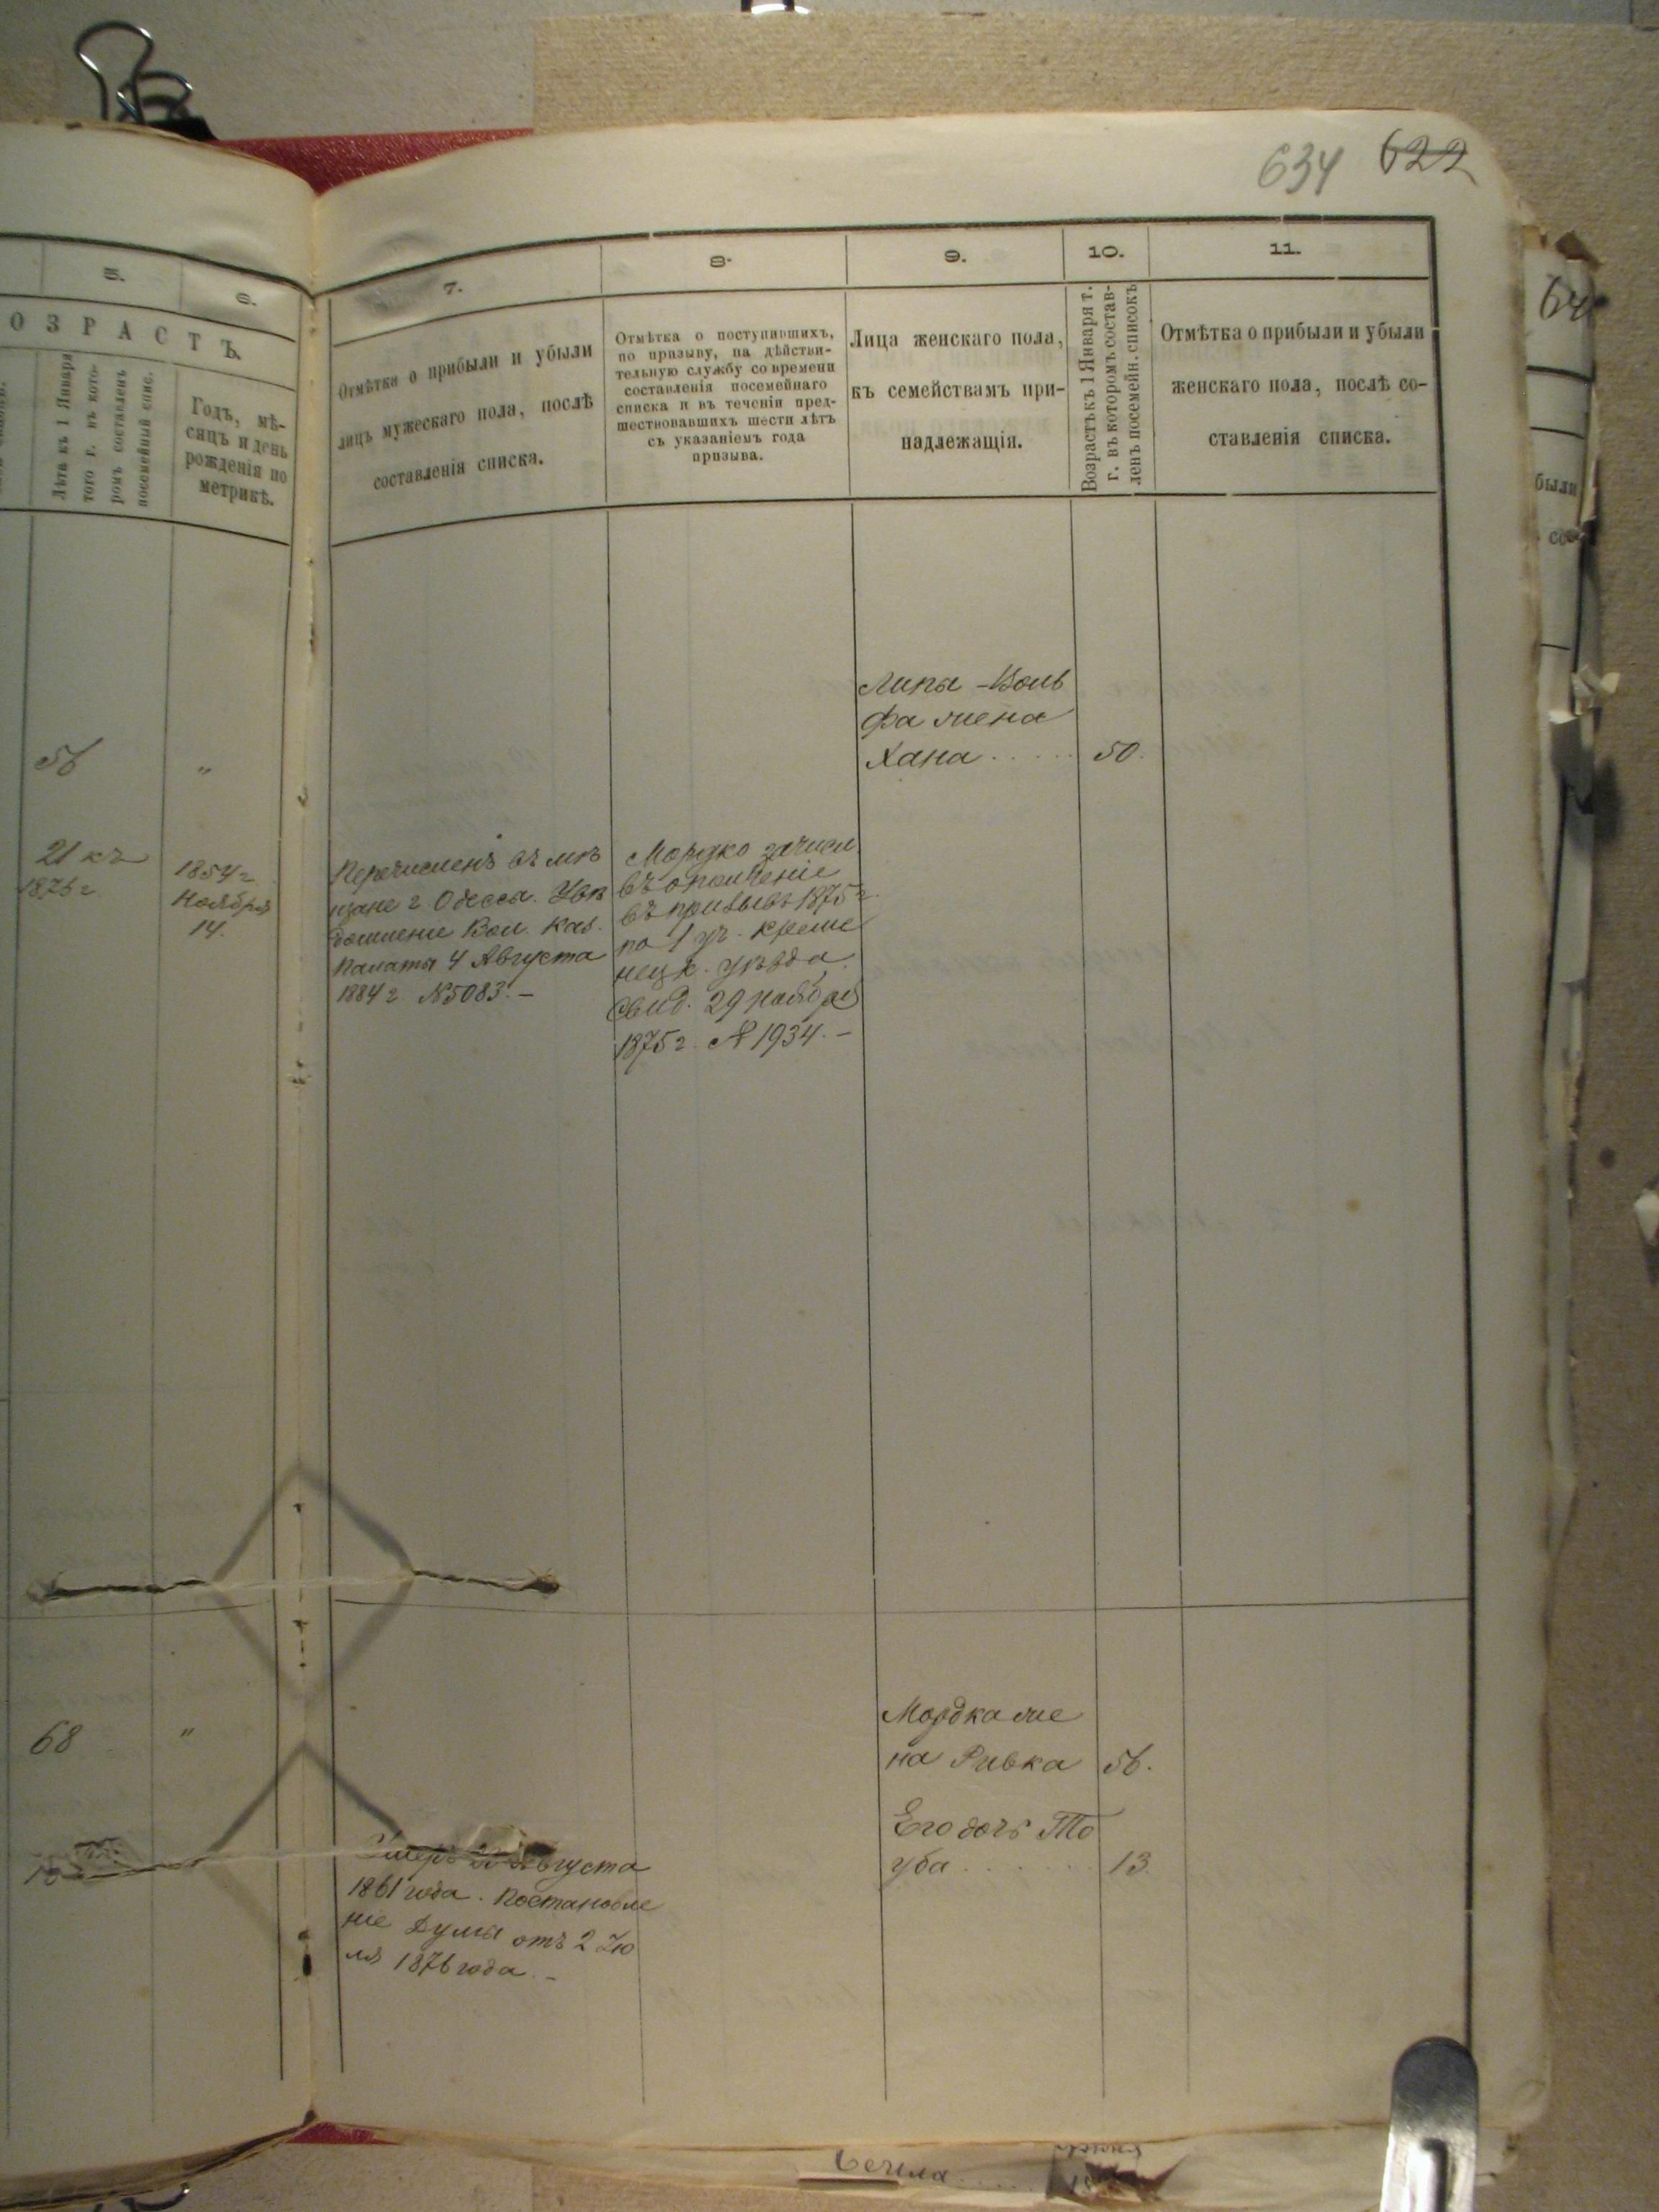 634 622
5.
6.
ОЗРАСТЪ.
Лѣта къ 1 Января
того г. въ кото-
ромъ составленъ
посемейный спис.
Годъ, мѣ-
сяцъ и день
рожденія по
метрикѣ.
7.
Отмѣтка о прибыли и убыли
лицъ мужескаго пола, послѣ
составленія списка.
8.
Отмѣтка о поступившихъ,
по призыву, на дѣйстви-
тельную службу со времени
составленія посемейнаго
списка и въ теченіи пред-
шествовавшихъ шести лѣтъ
съ указаніемъ года
призыва.
9.
Лица женскаго пола,
къ семействамъ при-
надлежащія.
10.
Возрастъ къ 1 Января т.
г. въ которомъ состав-
ленъ посемейн. списокъ
11.
Отмѣтка о прибыли и убыли
женскаго пола, послѣ со-
ставленія списка.
были
56 "
Липы-Воль
фа жена
Хана ..... 50.
21 къ
1876 г
1854 г.
Ноября
14.
Перечисленъ въ мѣ
щане г Одесса. Увѣ
домленіе Вол. Каз.
Палаты 4 Августа
1884 г. №5083.-
Мордко зачисл.
въ ополченіе
въ призывъ 1875 г.
по 1 уч. Креме
нецк. уѣзда.
Свид. 29 Ноября
1875 г. № 1934.-
68 "
Мордка же
на Ривка 56.
Его дочь То
уба ...... 13.
Умеръ Августа
1861 года. Постановле
ніе Думы отъ 2 Ію
ля 1876 года.-